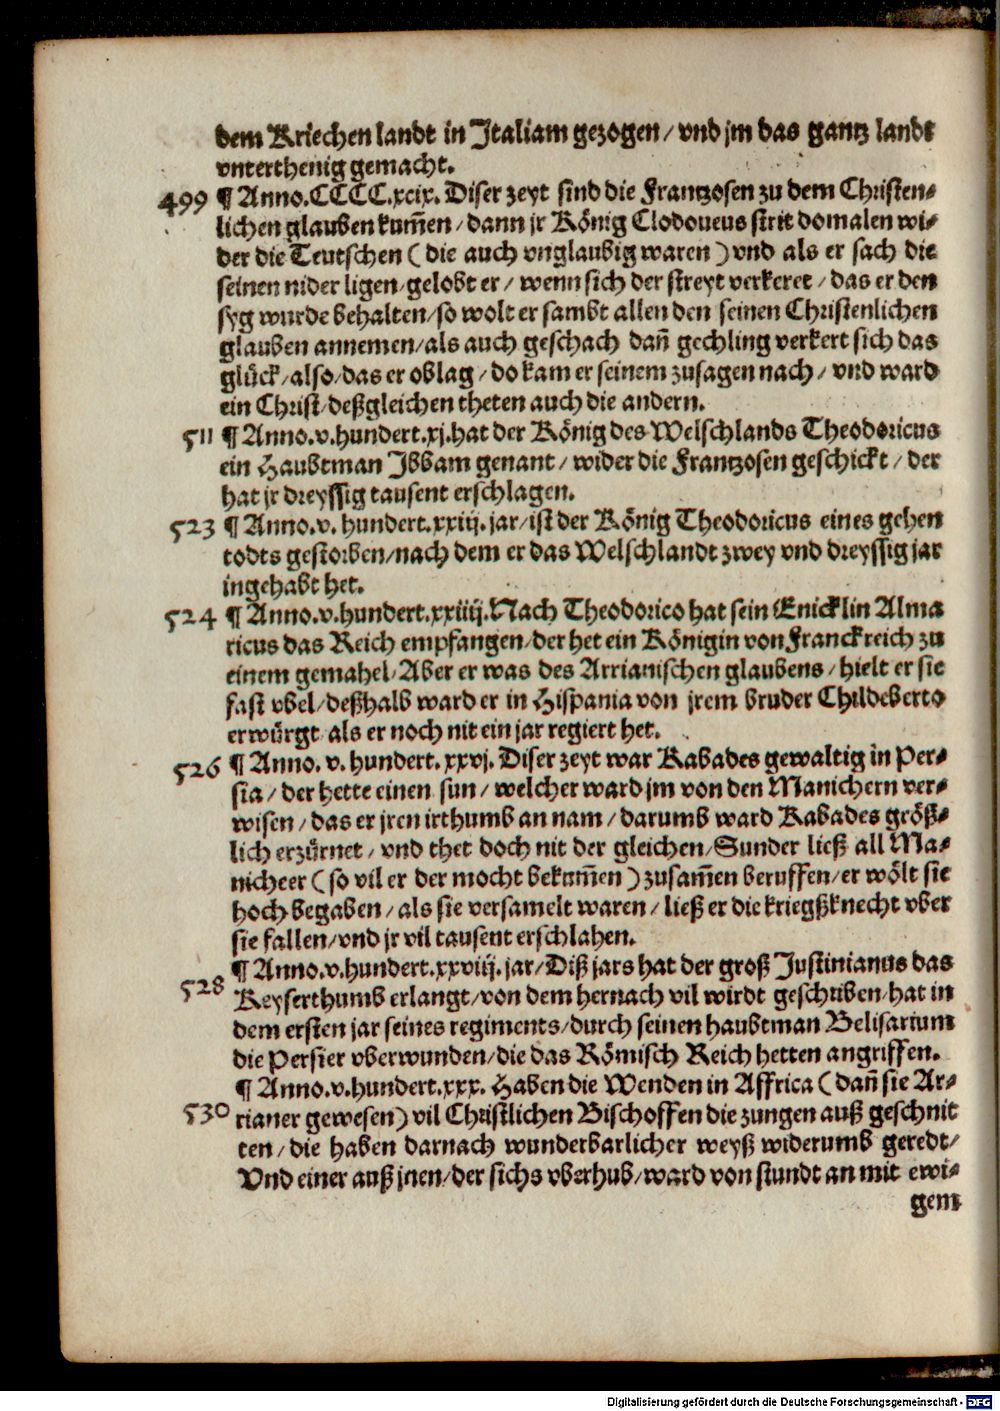 dem Kriechen landt in Italiam gezogen / vnd jm das gantz landt
vnterthenig gemacht.
499 ¶ Anno.CCCC.xcix. Diser zeyt sind die Frantzosen zu dem Christen⸗
lichen glauben kum̃en / dann jr König Clodoueus strit domalen wi⸗
der die Teutschen ( die auch vnglaubig waren ) vnd als er sach die
seinen nider ligen / gelobt er / wenn sich der streyt verkeret / das er den
syg wurde behalten / so wolt er sambt allen den seinen Christenlichen
glauben annemen / als auch geschach dañ gechling verkert sich das
glück / also / das er oblag / do kam er seinem zusagen nach / vnd ward
ein Christ / deßgleichen theten auch die andern.
511 ¶ Anno.v.hundert.xj.hat der König des Welschlands Theodoricus
ein Haubtman Ibbam genant / wider die Frantzosen geschickt / der
hat jr dreyssig tausent erschlagen.
523 ¶ Anno.v. hundert.xxiij. jar / ist der König Theodoricus eines gehen
todts gestorben / nach dem er das Welschlandt zwey vnd dreyssig jar
ingehabt het.
524 ¶ Anno.v.hundert.xxiiij. Nach Theodorico hat sein Enicklin Alma
ricus das Reich empfangen / der het ein Königin von Franckreich zu
einem gemahel / Aber er was des Arrianischen glaubens / hielt er sie
fast vbel / deßhalb ward er in Hispania von jrem bruder Childeberto
erwürgt als er noch nit ein jar regiert het.
526 ¶ Anno. v. hundert. xxvj. Diser zeyt war Kabades gewaltig in Per⸗
sia / der hette einen sun / welcher ward jm von den Manichern ver⸗
wisen / das er jren irthumb an nam / darumb ward Kabades größ⸗
lich erzürnet / vnd thet doch nit der gleichen / Sunder ließ all Ma⸗
nicheer ( so vil er der mocht bekum̃en ) zusam̃en beruffen / er wölt sie
hoch begaben / als sie versamelt waren / ließ er die kriegßknecht vber
sie fallen / vnd jr vil tausent erschlahen.
528 ¶ Anno.v.hundert.xxviij. jar / Diß jars hat der groß Justinianus das
Keyserthumb erlangt / von dem hernach vil wirdt geschriben / hat in
dem ersten jar seines regiments / durch seinen haubtman Belisarium
die Persier vberwunden / die das Römisch Reich hetten angriffen.
¶ Anno.v.hundert.xxx. Haben die Wenden in Affrica ( dañ sie Ar⸗
530 rianer gewesen ) vil Christlichen Bischoffen die zungen auß geschnit
ten / die haben darnach wunderbarlicher weyß widerumb geredt /
Vnd einer auß jnen / der sichs vberhub / ward von stundt an mit ewi⸗
gem
Digitalisierung gefördert durch die Deutsche Forschungsgemeinschaft - DFG